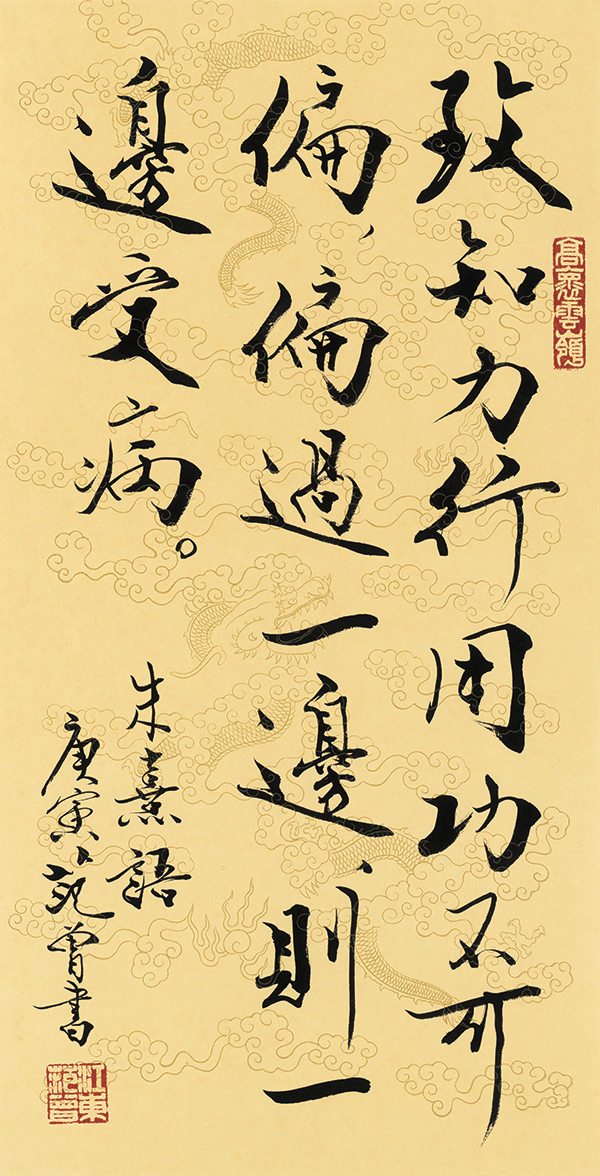 致知力行用功不可
偏、偏過一邊、則一
邊受病。
朱熹語
庚寅范曾書
江東
范曾